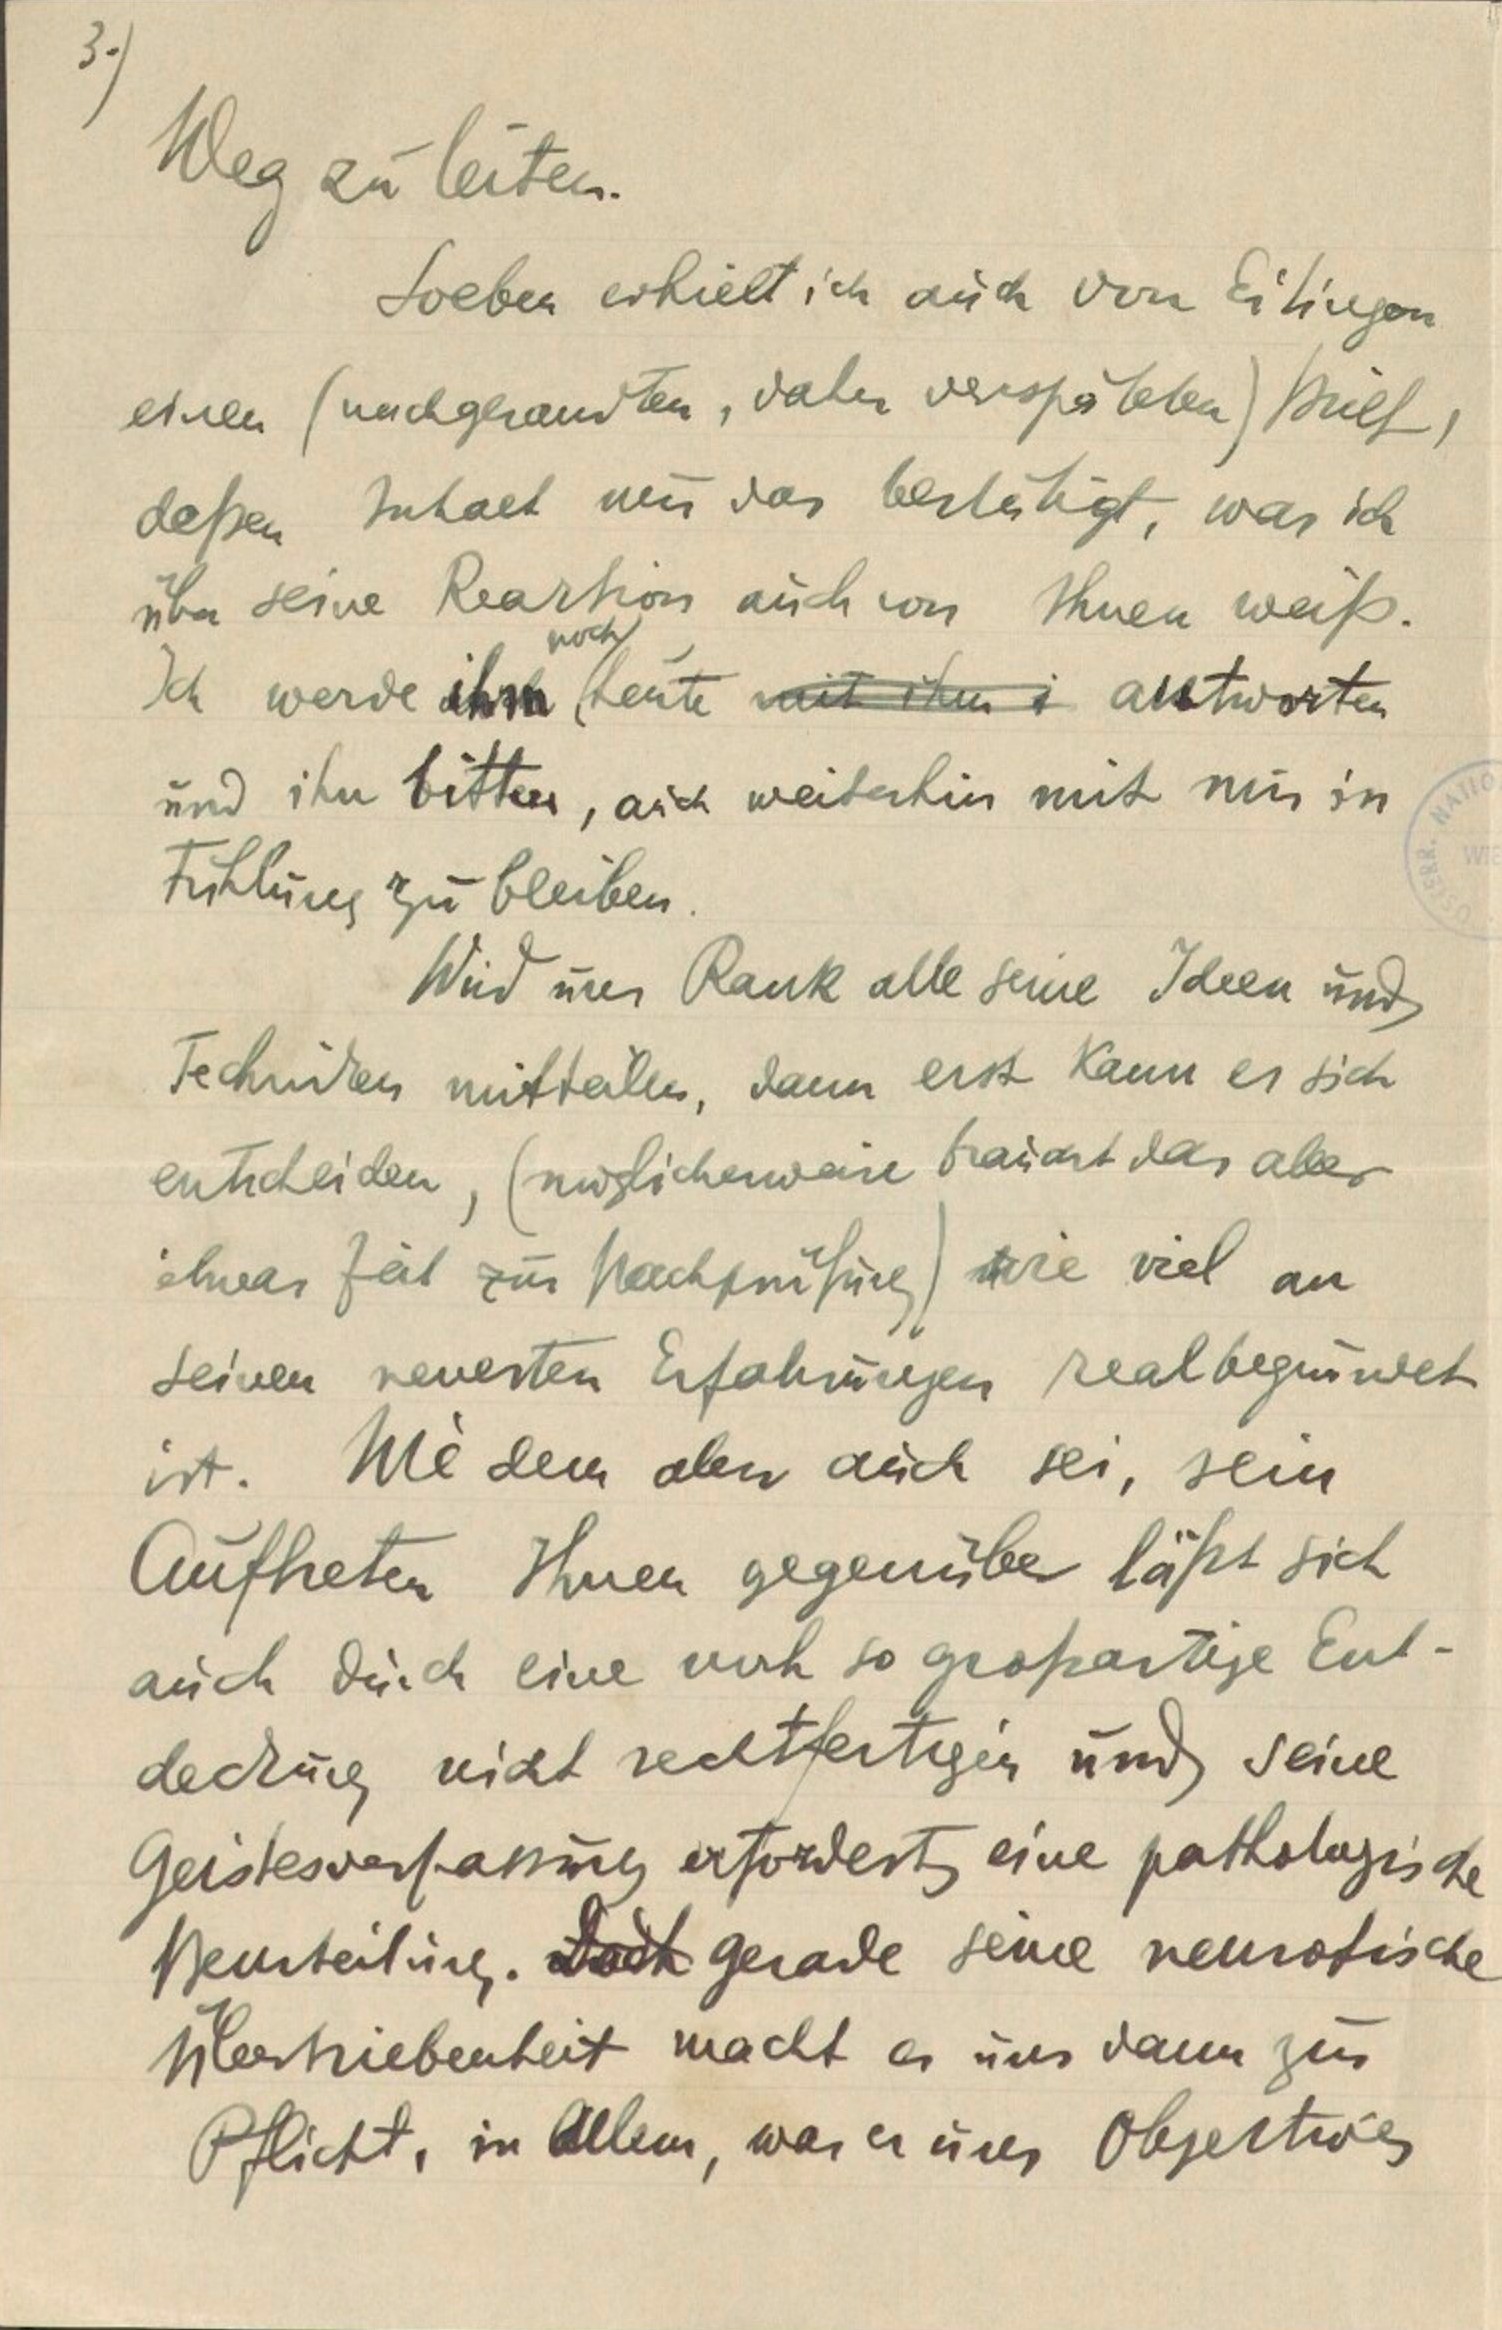 3.)
Weg zu leiten.
Soeben erhielt ich auch von Eitingon
einen (nachgesandten, daher verspäteten) Brief,
deßen Inhalt nur das bestätigt, was ich
über seine Reaktion auch von Ihnen weiß.
noch
Ich werde ihm heute mit ihm i antworten
und ihn bitten, auch weiterhin mit mir in
Fühlung zu bleiben.
Wird uns Rank alle seine Ideen und
Techniken mitteilen, dann erst kann es sich
entscheiden, (möglicherweise braucht das aber
etwas Zeit zur Nachprüfung) wie viel an
seinen neuesten Erfahrungen real begründet
ist. Wie dem aber auch sei, sein
Auftreten Ihnen gegenüber läßt sich
auch durch eine noch so großartige Ent-
deckung nicht rechtfertigen und seine
Geistesverfassung erfordert eine pathologische
Beurteilung. Doch gerade seine neurotische
Übertriebenheit macht es uns dann zur
Pflicht, in Allem, was er uns Objektives
ÖSTERR. NATIO
WIE